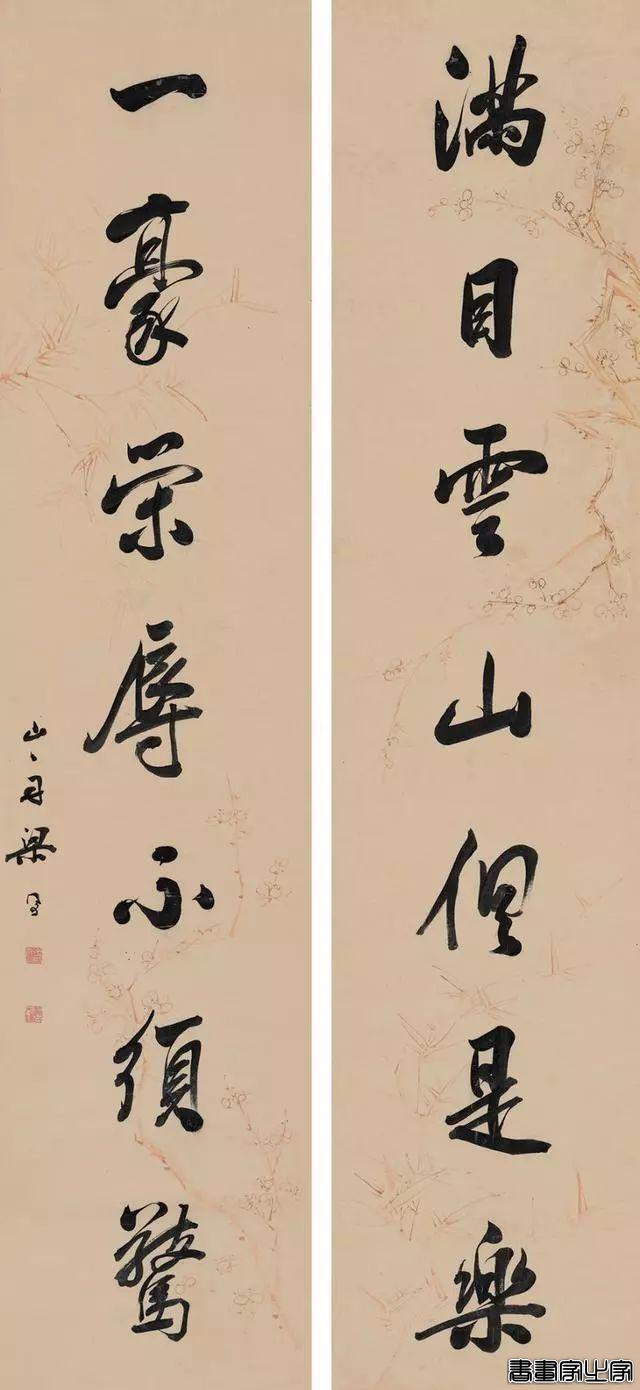 滿目雲山但是樂
一豪榮辱不須驚
山舟梁同書
書畫家之家